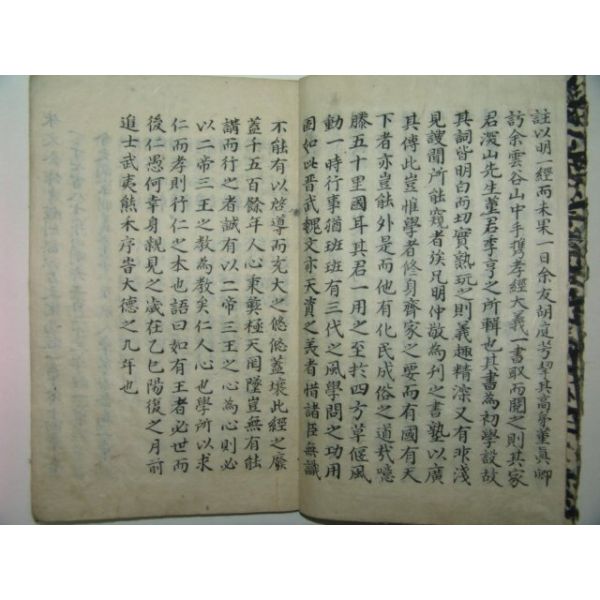 註以明一經而未果一日余友胡庭芳挈其高第董眞卿
訪余雲谷山中手携孝經大義一書取而閱之則其家
君深山先生董君季亨之所輯也其書為初學設故
其詞皆明白而切實熟玩之則義趣精深又有非淺
見謏聞所能窺者族兄明仲敬為刊之書塾以廣
其傳此豈惟學者修身齊家之要而有國有天
下者亦豈能外是而他有化民成俗之道哉噫
滕五十里國耳其君一用之至於四方草偃風
動一時行事猶班班有三代之風學問之功用
固如此晋武魏文亦天資之義者惜諸臣無識
不能有以啓導而充大之悠悠蓋壤此經之廢
蓋千五百餘年人心秉彛極天罔墜豈無有能
講而行之者誠有以二帝三王之心為心則必
以二帝三王之教為教矣仁人心也學所以求
仁而孝則行仁之本也語曰如有王者必世而
後仁愚何幸身親見之歲在乙巳陽復之月前
進士武夷熊禾序旹大德之九年也